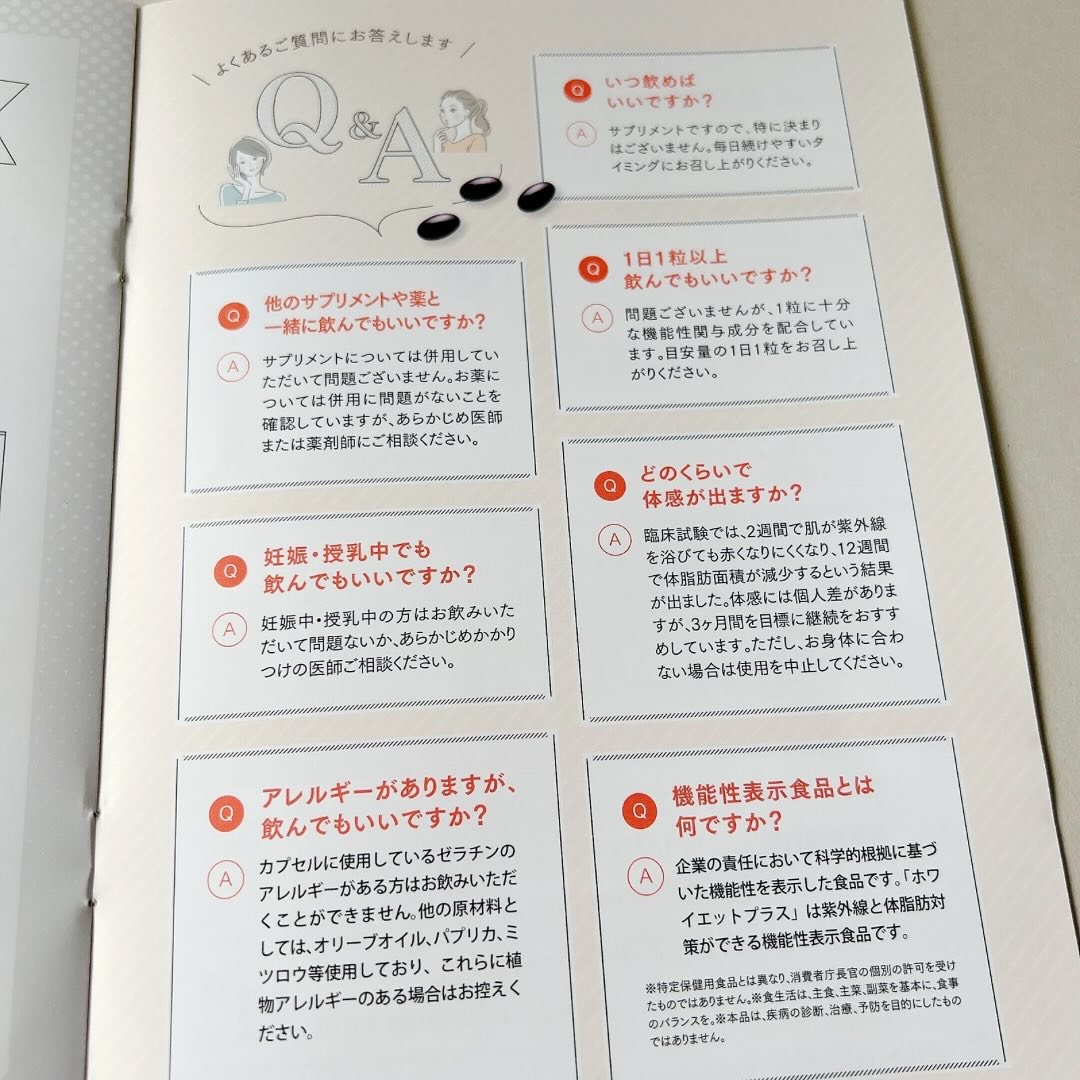 よくあるご質問にお答えします
Q&A
Q いつ飲めば
いいですか?
A サプリメントですので、特に決まり
はございません。毎日続けやすいタ
イミングにお召し上がりください。
Q 1日1粒以上
飲んでもいいですか?
A 問題ございませんが、1粒に十分
な機能性関与成分を配合してい
ます。目安量の1日1粒をお召し上
がりください。
Q 他のサプリメントや薬と
一緒に飲んでもいいですか?
A サプリメントについては併用してい
ただいて問題ございません。お薬に
ついては併用に問題がないことを
確認していますが、あらかじめ医師
または薬剤師にご相談ください。
Q どのくらいで
体感が出ますか?
A 臨床試験では、2週間で肌が紫外線
を浴びても赤くなりにくくなり、12週間
で体脂肪面積が減少するという結果
が出ました。体感には個人差がありま
すが、3ヶ月間を目標に継続をおすす
めしています。ただし、お身体に合わ
ない場合は使用を中止してください。
Q 妊娠・授乳中でも
飲んでもいいですか?
A 妊娠中・授乳中の方はお飲みいた
だいて問題ないか、あらかじめかかり
つけの医師ご相談ください。
Q アレルギーがありますが、
飲んでもいいですか?
A カプセルに使用しているゼラチンの
アレルギーがある方はお飲みいただ
くことができません。他の原材料と
しては、オリーブオイル、パプリカ、ミ
ツロウ等使用しており、これらに植
物アレルギーのある場合はお控えく
ださい。
Q 機能性表示食品とは
何ですか?
A 企業の責任において科学的根拠に基づ
いた機能性を表示した食品です。「ホワ
イエットプラス」は紫外線と体脂肪対
策ができる機能性表示食品です。
※特定保健用食品とは異なり、消費者庁長官の個別の許可を受け
たものではありません。※食生活は、主食、主菜、副菜を基本に、食事
のバランスを。※本品は、疾病の診断、治療、予防を目的にしたもの
ではありません。